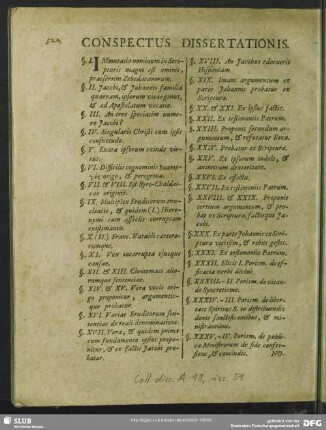 CONSPECTUS DISSERTATIONIS.
§. I. IMmutatio nominum in Scri-
pturis magni est ominis,
præsertim Zebedæanorum.
§. II. Jacobi, & Johannis familia
quænam, ipsorum vitæ genus,
& ad Apostolatum vocatio.
§. III. An tres speciatim nume-
ro Jacobi?
§. IV. Singularis Christi cum ipsis
consuetudo.
§. V. Enata ipsorum exinde vir-
tus.
§. VI. Difficilis cognominis
origo, & peregrina.
§. VII & VIII. Est Syro-Chaldai-
cæ originis.
§. IX. Multiplex Eruditorum enu-
cleatio, & quidem (I.) Hiero-
nymi cum assectis corruptam
existimantis.
§. X (II.) Franc. Vatabli cætero-
rumque.
§. XI. Vox incorrupta ejusque
causæ.
§. XII. & XIII. Christmanni alio-
rumque sententiæ.
§. XIV. & XV. Vera vocis ori-
go proponitur, argumentis-
que probatur.
§. XVI Variæ Eruditorum sen-
tentiæ de reali denominatione.
§. XVII. Vera, & quidem primæ
cum fundamento ipsius propo-
nitur, & ex factis Jacobi pro-
batur.
§. XVIII. An Jacobus edocuerit
Hispaniam.
§. XIX. Imum argumentum ex
parte Johannis probatur ex
Scriptura.
§. XX & XXI. Ex ipsius factis.
§. XXII. Ex testimoniis Patrum.
§. XXIII. Proponis secundum ar-
gumentum, & refutatur Beza.
§. XXIV. Probatur ex Scriptura.
§. XXV. Ex ipsorum indole, &
animorum demeritate.
§. XXVI. Ex effectu.
§. XXVII. Ex testimoniis Patrum.
§. XXVIII & XXIX. Proponit
tertium argumentum, & pro-
bat ex Scriptura, factisque Ja-
cobi.
§. XXX. Ex parte Johannis ex Scri-
ptura vicissim, & rebus gestis.
§. XXXI. Ex testimoniis Patrum.
§. XXXII. Elicit I. Porism. de ef-
ficacia verbi divini.
§. XXXIII.--II. Porism. de vitan-
do Syncretismo.
§. XXXIV.--III. Porism. de liber-
tate Spiritus S. in distribuendis
donis sanctificantibus, & mi-
nistrantibus.
§. XXXV.--IV. Porism. de publi-
ca Ministrorum de fide confes-
sione, & concludit.
Coll. diss. A 19, misc. 51
SLUB
http://digital.slub-dresden.de/
gefördert von der
Deutschen Forschungsgemeinschaft
DFG